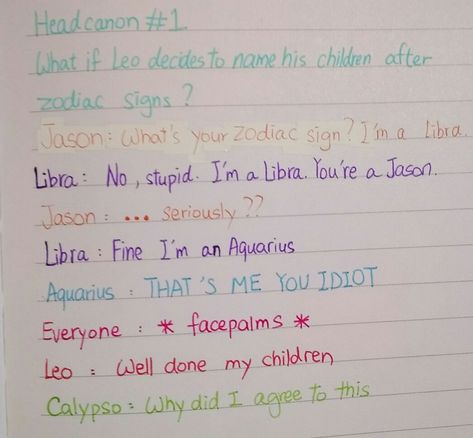 Headcanon #1
What if Leo decides to name his children after
zodiac signs ?
Jason: What's your zodiac sign? I'm a Libra.
Libra : No, stupid. I'm a Libra. You're a Jason.
Jason : ... seriously??
Libra : Fine I'm an Aquarius
Aquarius : THAT'S ME YOU IDIOT
Everyone : * facepalms *
Leo : Well done my children
Calypso : Why did I agree to this